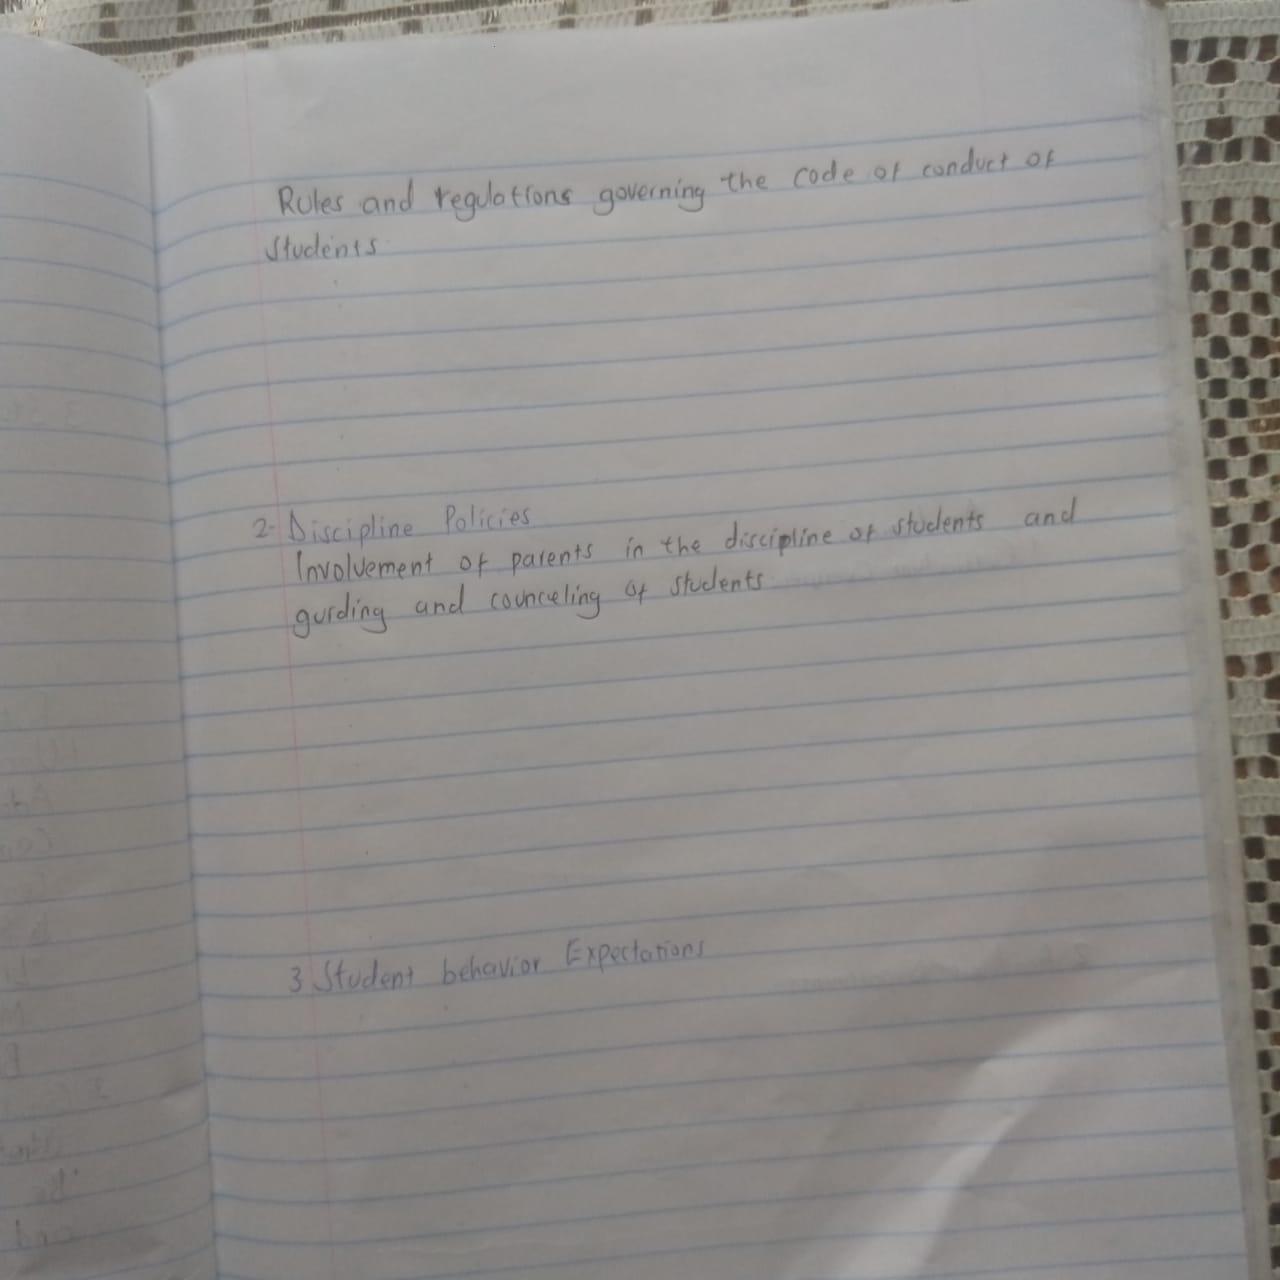 Rules and regulations governing the code of conduct of
students
2- Discipline Policies
Involvement of parents in the discipline of students and
guiding and counceling of students
3 Student behavior Expectations